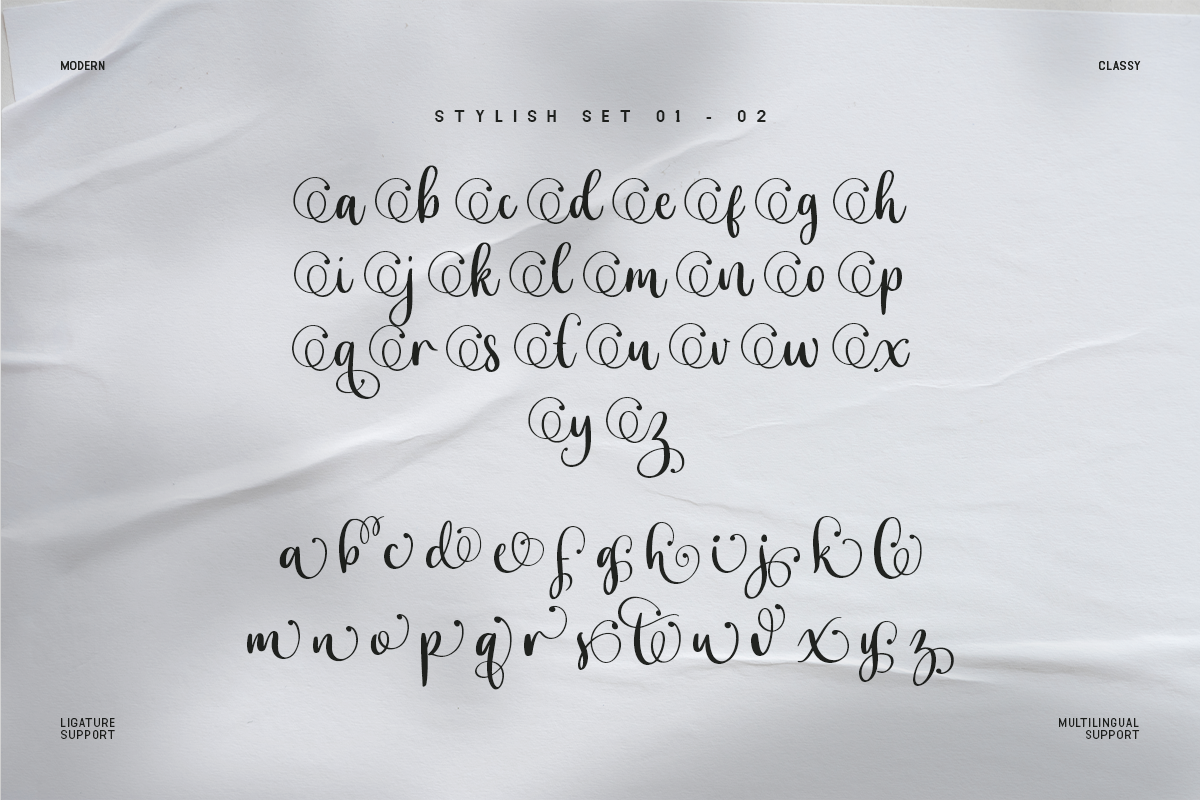 MODERN
CLASSY
STYLISH SET 01 - 02
a b c d e f g h
i j k l m n o p
q r s t u v w x
y z
a b c d e f g h i j k l
m n o p q r s t u v x y z
LIGATURE
SUPPORT
MULTILINGUAL
SUPPORT